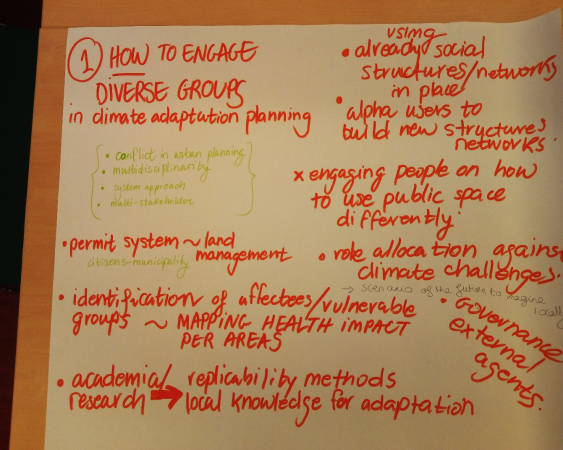 1 HOW TO ENGAGE
DIVERSE GROUPS
in climate adaptation planning
• conflict in urban planning
• multidisciplinarity
• system approach
• multi-stakeholder
• permit system ~ land
management
citizens-municipality
• identification of affectees/vulnerable
groups ~ MAPPING HEALTH IMPACT
PER AREAS
• academia/
research → replicability methods
local knowledge for adaptation
using
• already social
structures/networks
in place
• alpha users to
build new structures
networks.
x engaging people on how
to use public space
differently
• role allocation against
climate challenges.
→ scenario of the future to imagine
locally
• Governance
external
agents.